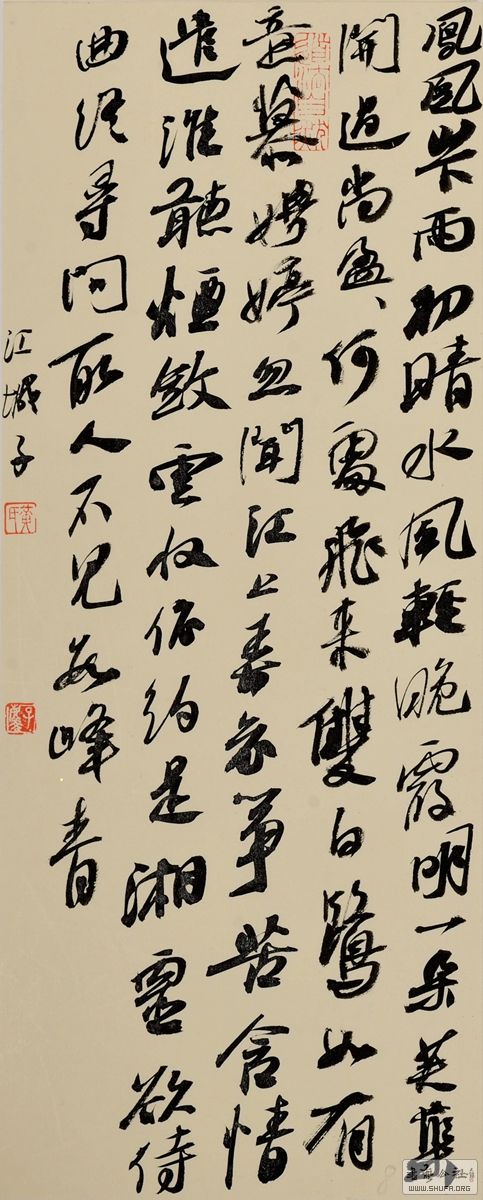 鳳凰山下雨初晴水風輕晚霞明一朵芙蕖
開過尚盈盈何處飛來雙白鷺如有
意慕娉婷忽聞江上弄哀箏苦含情
遣誰聽煙斂雲收依約是湘靈欲待
曲終尋問取人不見數峰青
江城子
黃
WWW.SHUFA.ORG